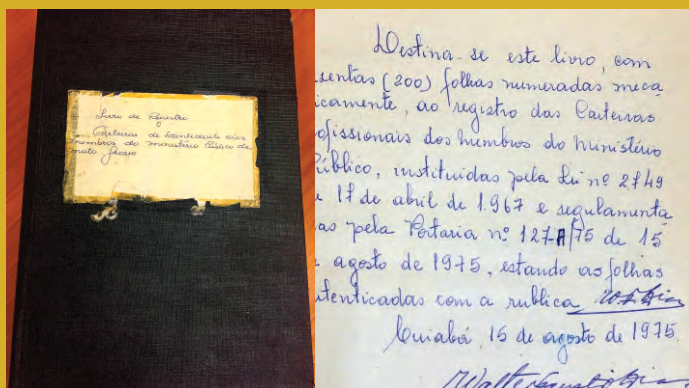 Livro de Registro
Carteiras de Identidade dos
membros do Ministério Público de
Mato Grosso
Destina-se este livro, com
sentas (200) folhas numeradas mecâ
icamente, ao registro das Carteiras
ofissionais dos membros do Ministério
úblico, instituidas pela Lei nº 2749
17 de abril de 1.967 e regulamenta
as pela Portaria nº 127-A/75 de 15
agosto de 1975, estando as folhas
utenticadas com a rublica
Cuiabá, 15 de agosto de 1975.